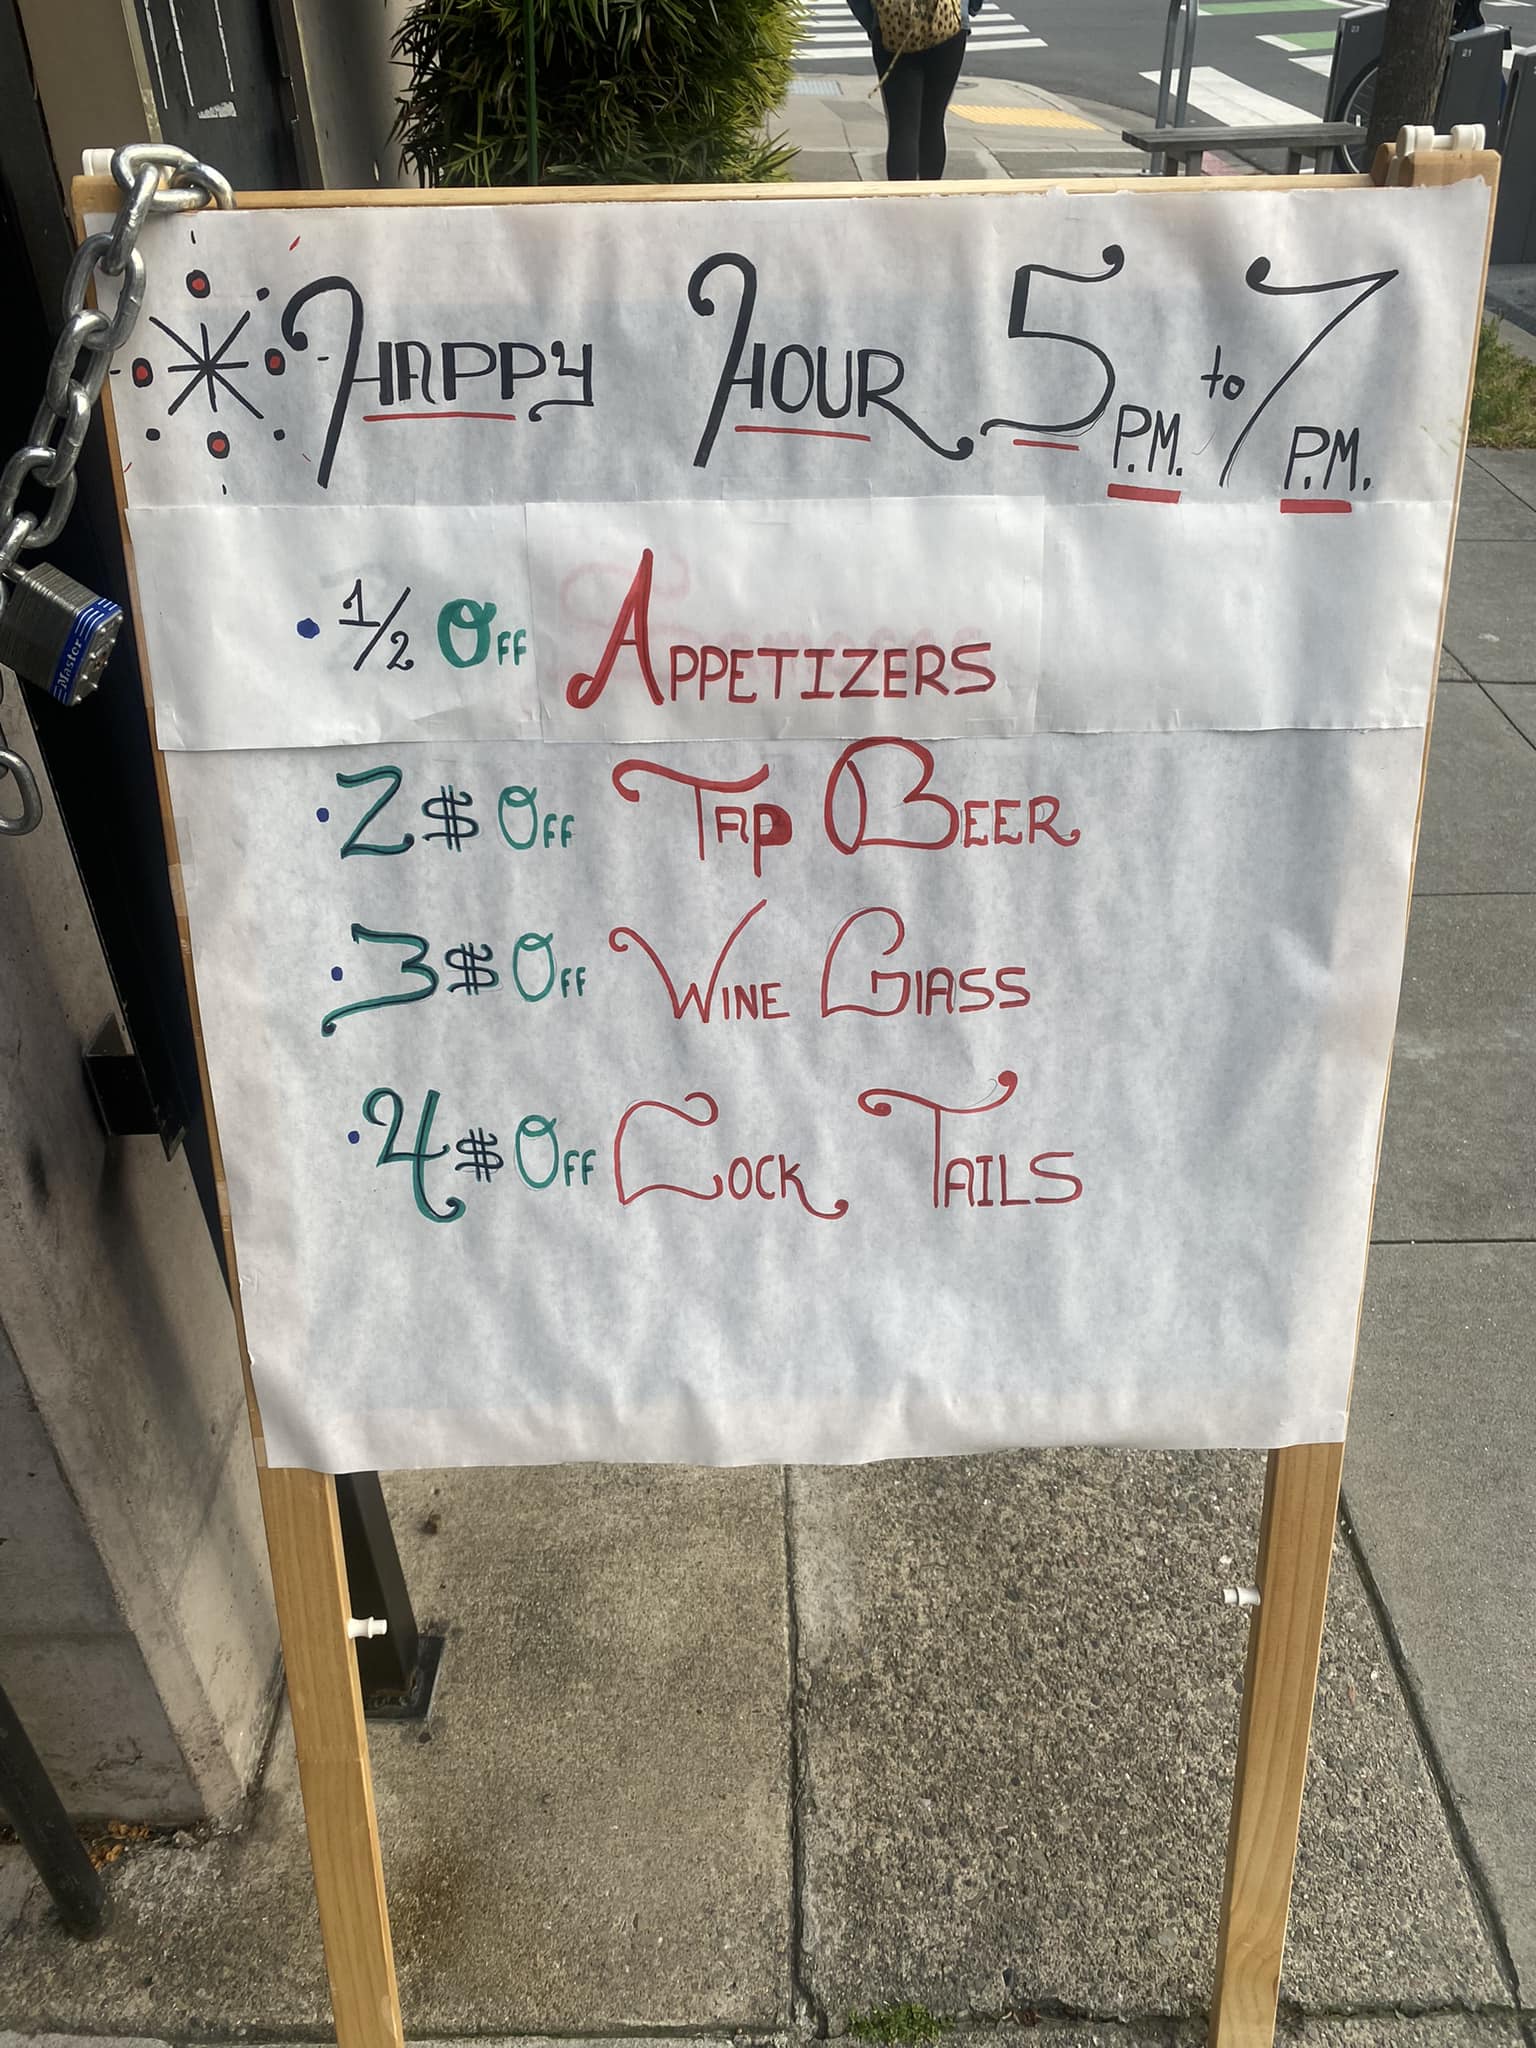 HAPPY HOUR 5 P.M. to 7 P.M.
• 1/2 OFF APPETIZERS
• 2$ OFF TAP BEER
• 3$ OFF WINE GlASS
• 4$ OFF COCK TAILS
Master
23
21